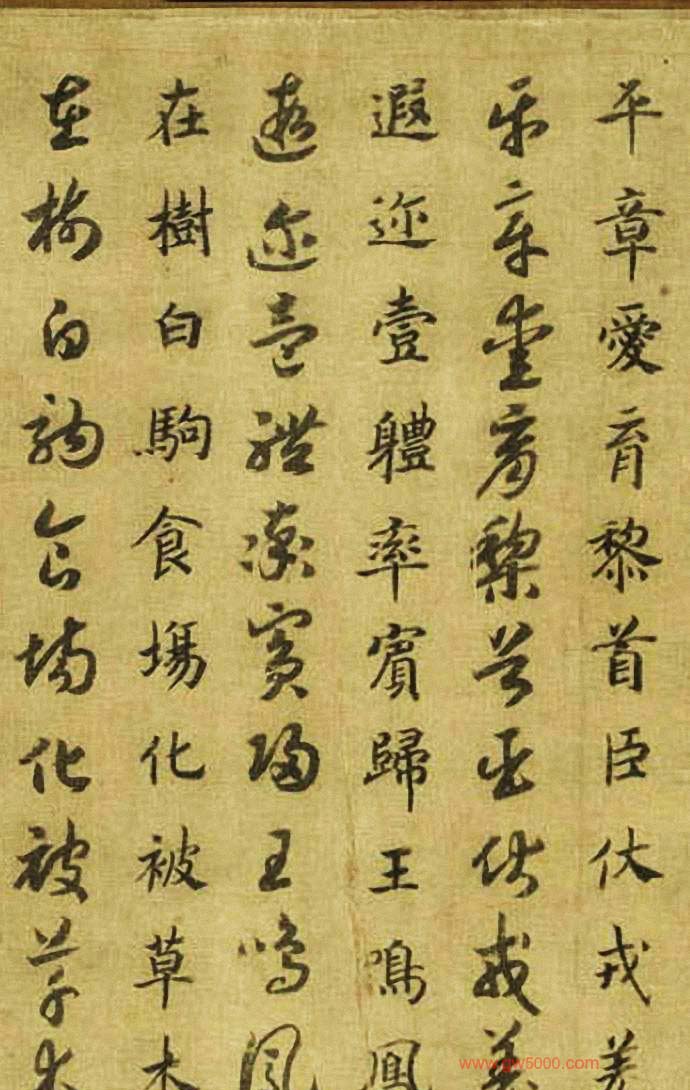 平章愛育黎首臣伏戎羌
平章愛育黎首臣伏戎羌
遐迩壹軆率賓歸王鳴鳳
遐迩壹軆率賓歸王鳴鳳
在樹白駒食場化被草木
在樹白駒食場化被草木
www.gw5000.com